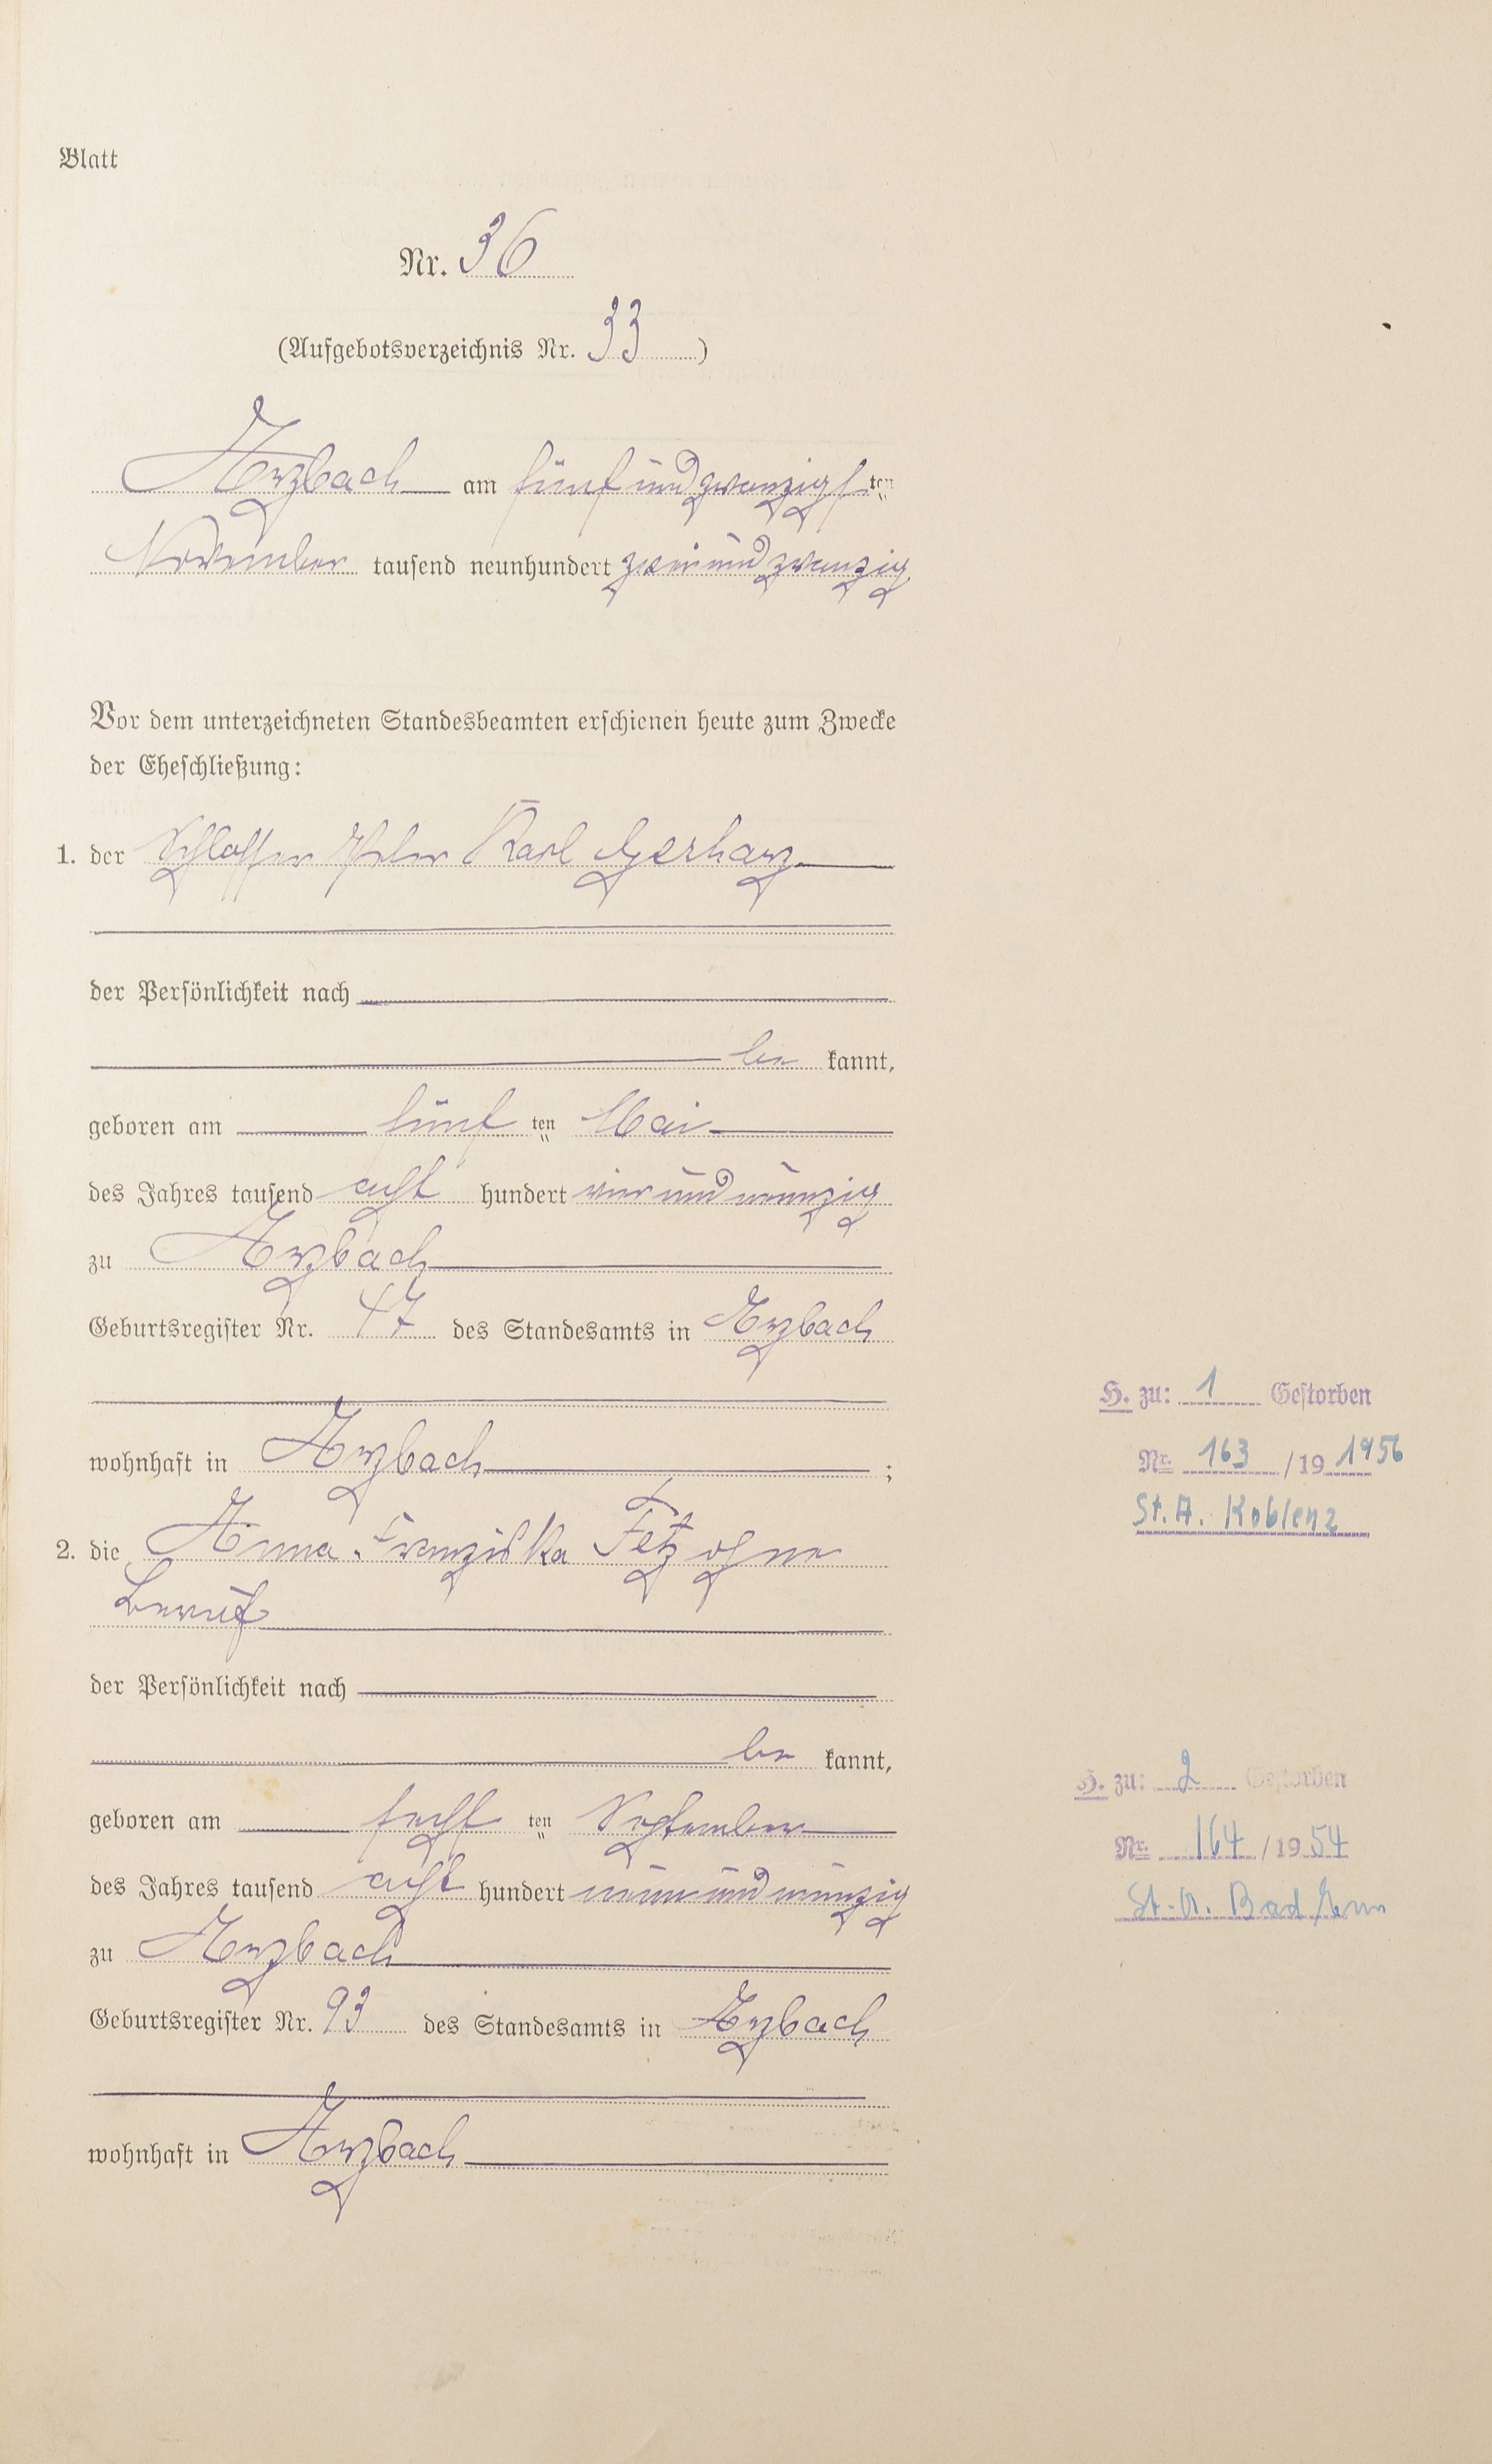 Blatt
Nr. 36
(Aufgebotsverzeichnis Nr. 33)
Arzbach am fünfundzwanzigsten
November tausend neunhundert zweiundzwanzig
Vor dem unterzeichneten Standesbeamten erschienen heute zum Zwecke
der Eheschließung:
1. der Schlosser Peter Karl Gerharz
der Persönlichkeit nach
be kannt,
geboren am fünf ten Mai
des Jahres tausend acht hundert vierundneunzig
zu Arzbach
Geburtsregister Nr. 47 des Standesamts in Arzbach
wohnhaft in Arzbach ;
H. zu: 1 Gestorben
Nr. 163 / 19 1956
St. A. Koblenz
2. die Anna Franziska Fetz ohne
Beruf
der Persönlichkeit nach
be kannt,
geboren am sechs ten September
des Jahres tausend acht hundert neunundneunzig
zu Arzbach
Geburtsregister Nr. 93 des Standesamts in Arzbach
wohnhaft in Arzbach
H. zu: 2 Gestorben
Nr. 164 / 19 54
St. A. Bad Ems